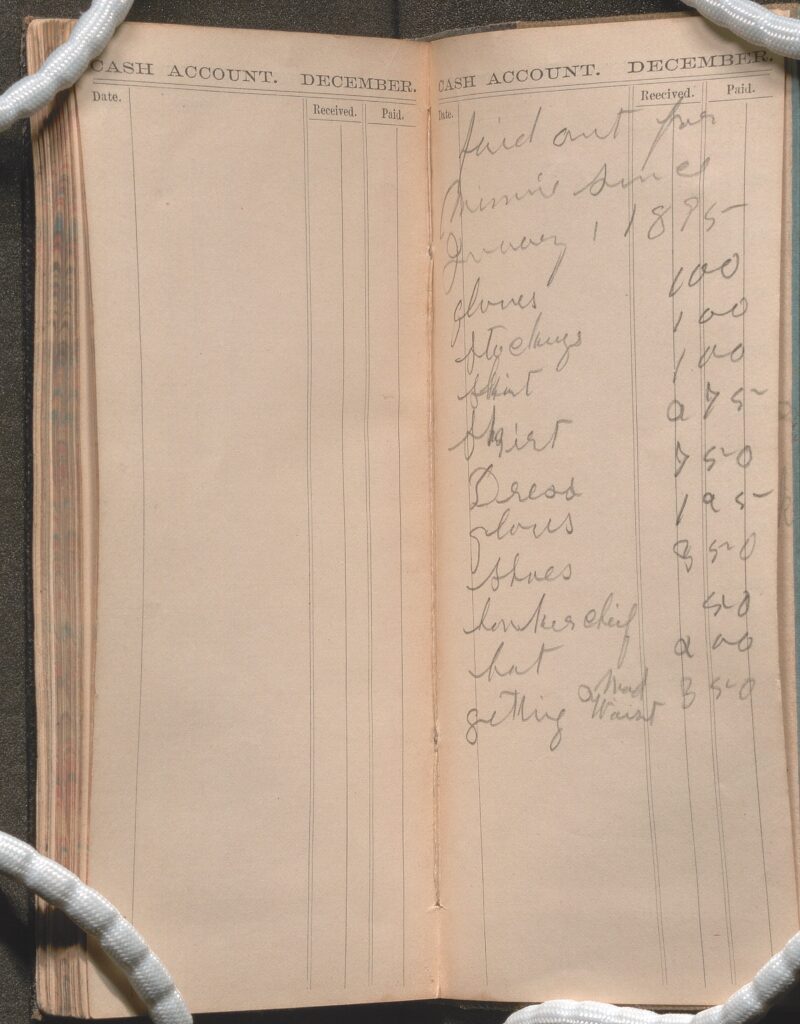 CASH ACCOUNT. DECEMBER.
Date. Received. Paid.
CASH ACCOUNT. DECEMBER.
Date. Received. Paid.
Paid out for
Minnie since
January 1 1895
gloves 1 00
stockings 1 00
skirt 1 00
skirt 2 75
Dress 7 50
gloves 1 25
shoes 3 50
hankerchief 50
hat 2 00
getting 2 mad Waist 3 50